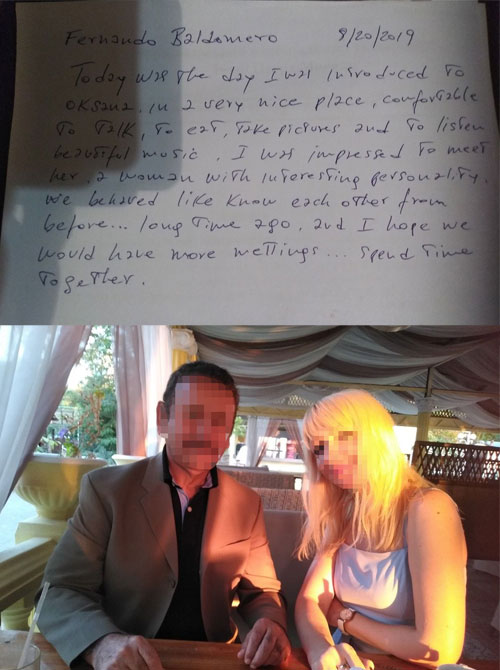 Fernando Baldomero 8/20/2019
Today was the day I was introduced to
oksana. in a very nice place, comfortable
to talk, to eat, take pictures and to listen
beautiful mosic. I was impressed to meet
her, a woman with interesting personality.
we behaved like know each other from
before... long time ago. and I hope we
would have more mettings... spend time
together.